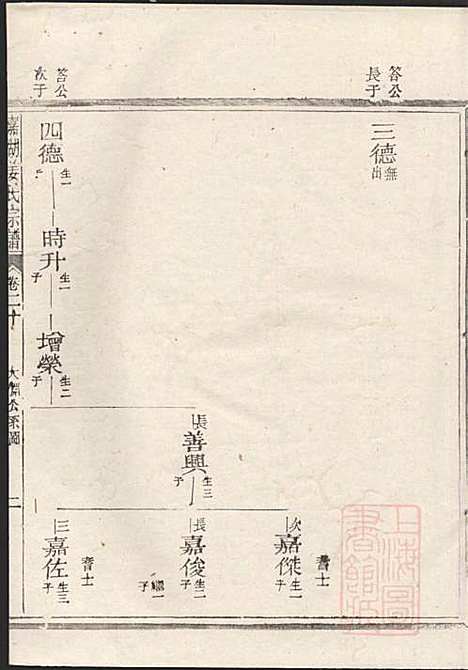 答公長子
三德 無出
答公次子
四德 生一子
時升 生一子
增榮 生二子
長 善興 生三子
次 嘉傑 生一子
長 嘉俊 生二子 繼一子
三 嘉佐 生三子
嘉湖姜氏宗譜
卷二十
二
上海圖書館藏